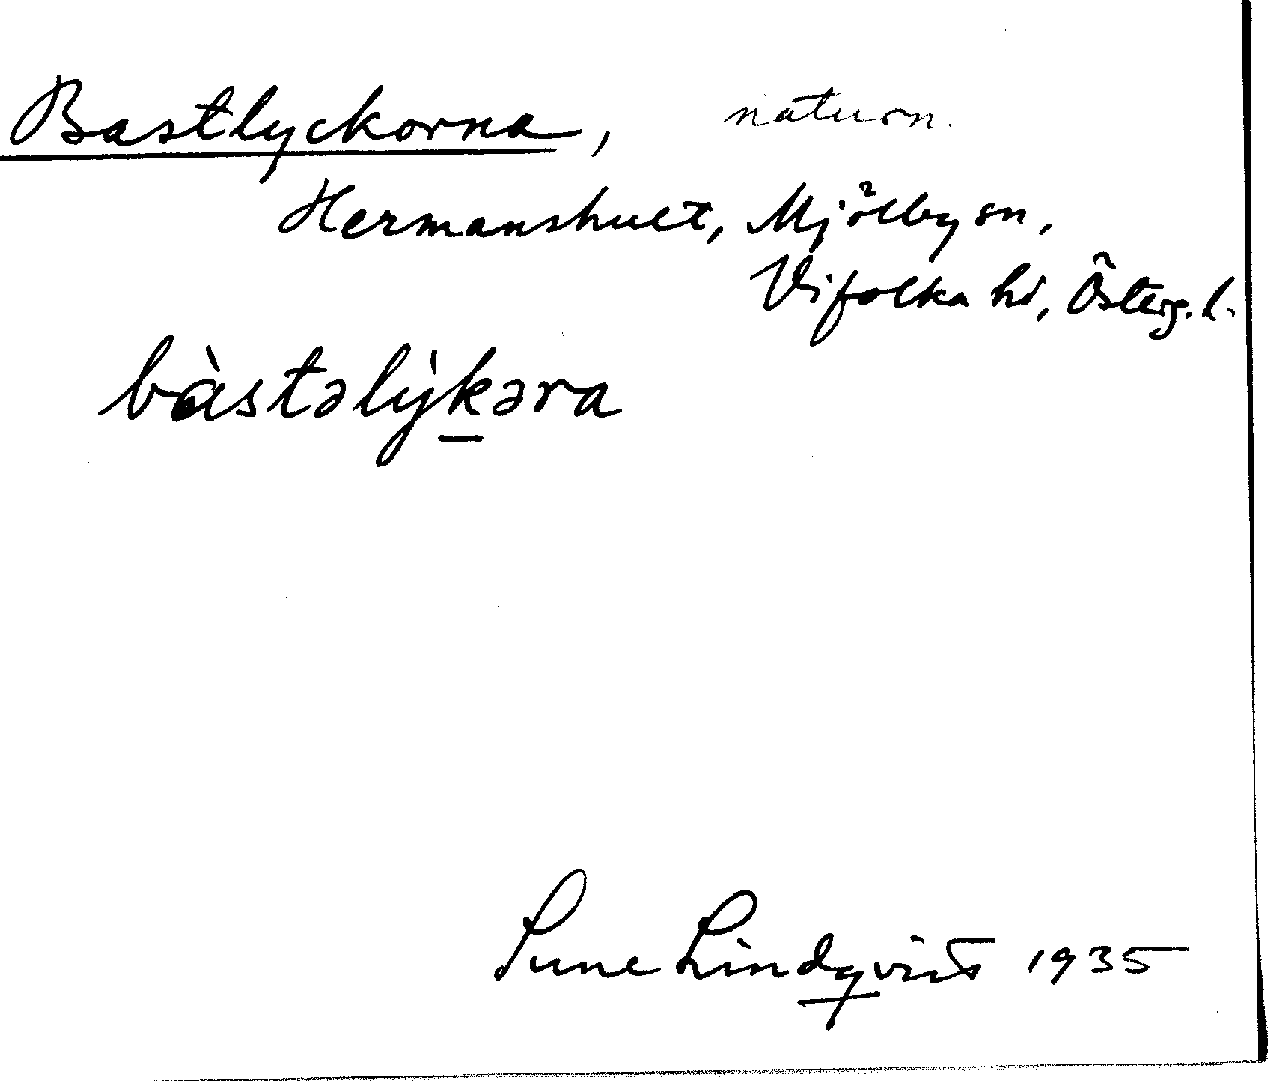 Bastlyckorna, naturn.
Hermanshult, Mjölby sn,
Vifolka hd, Österg. l.
bàstəlỳkəra
Sune Lindqvist 1935